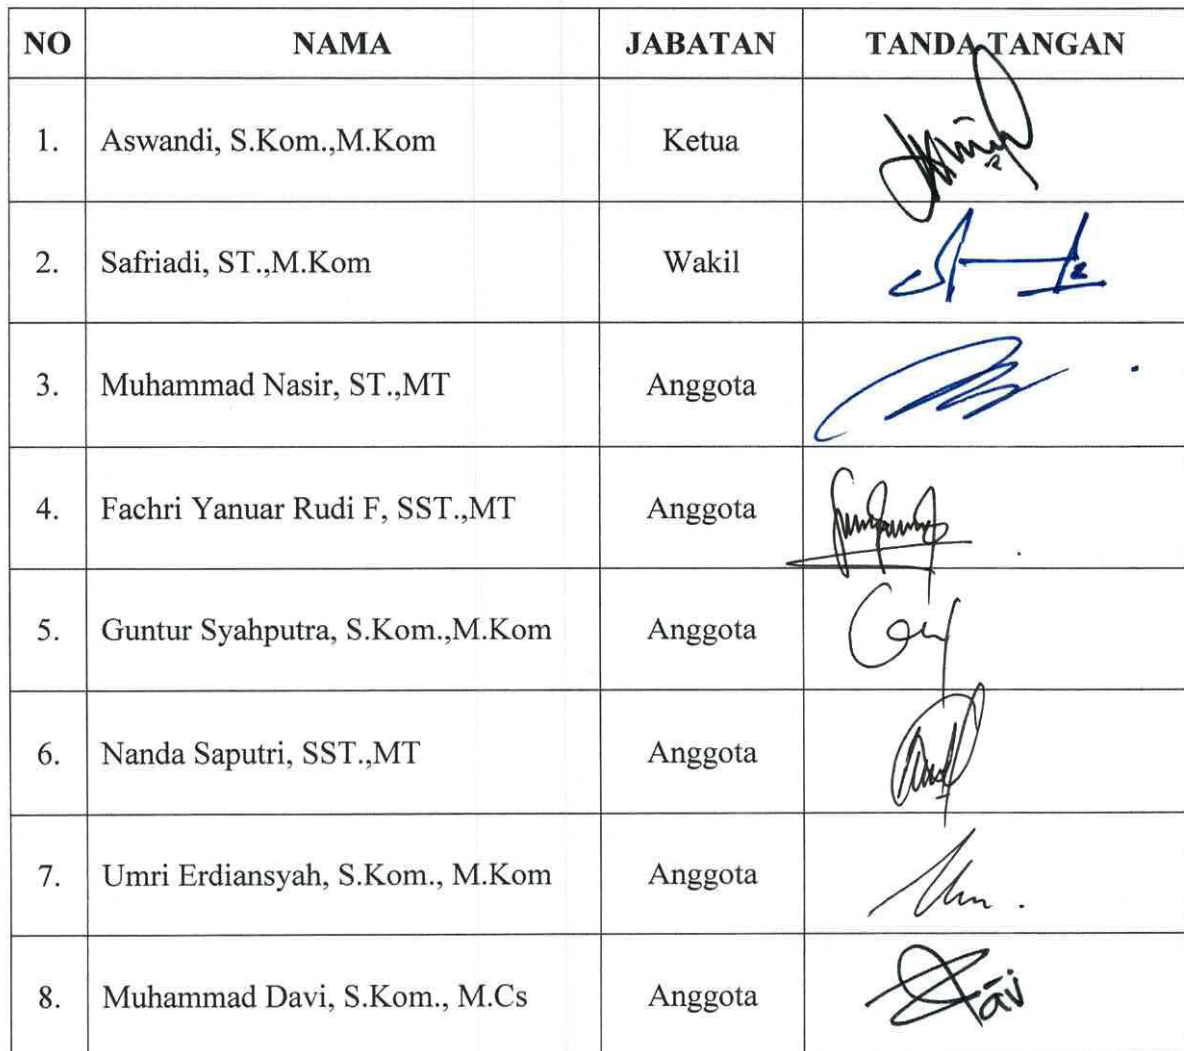 NO NAMA JABATAN TANDA TANGAN
1. Aswandi, S.Kom.,M.Kom Ketua
2. Safriadi, ST.,M.Kom Wakil
3. Muhammad Nasir, ST.,MT Anggota
4. Fachri Yanuar Rudi F, SST.,MT Anggota
5. Guntur Syahputra, S.Kom.,M.Kom Anggota
6. Nanda Saputri, SST.,MT Anggota
7. Umri Erdiansyah, S.Kom., M.Kom Anggota
8. Muhammad Davi, S.Kom., M.Cs Anggota